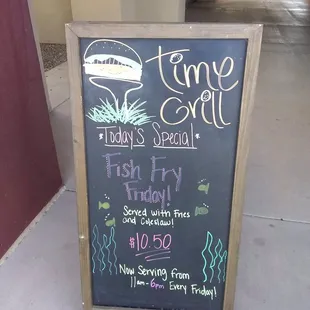 Time
Grill
Today's Special
Fish Fry
Friday!
Served with Fries
and Coleslaw!
$10.50
Now Serving from
11am-6pm Every Friday!